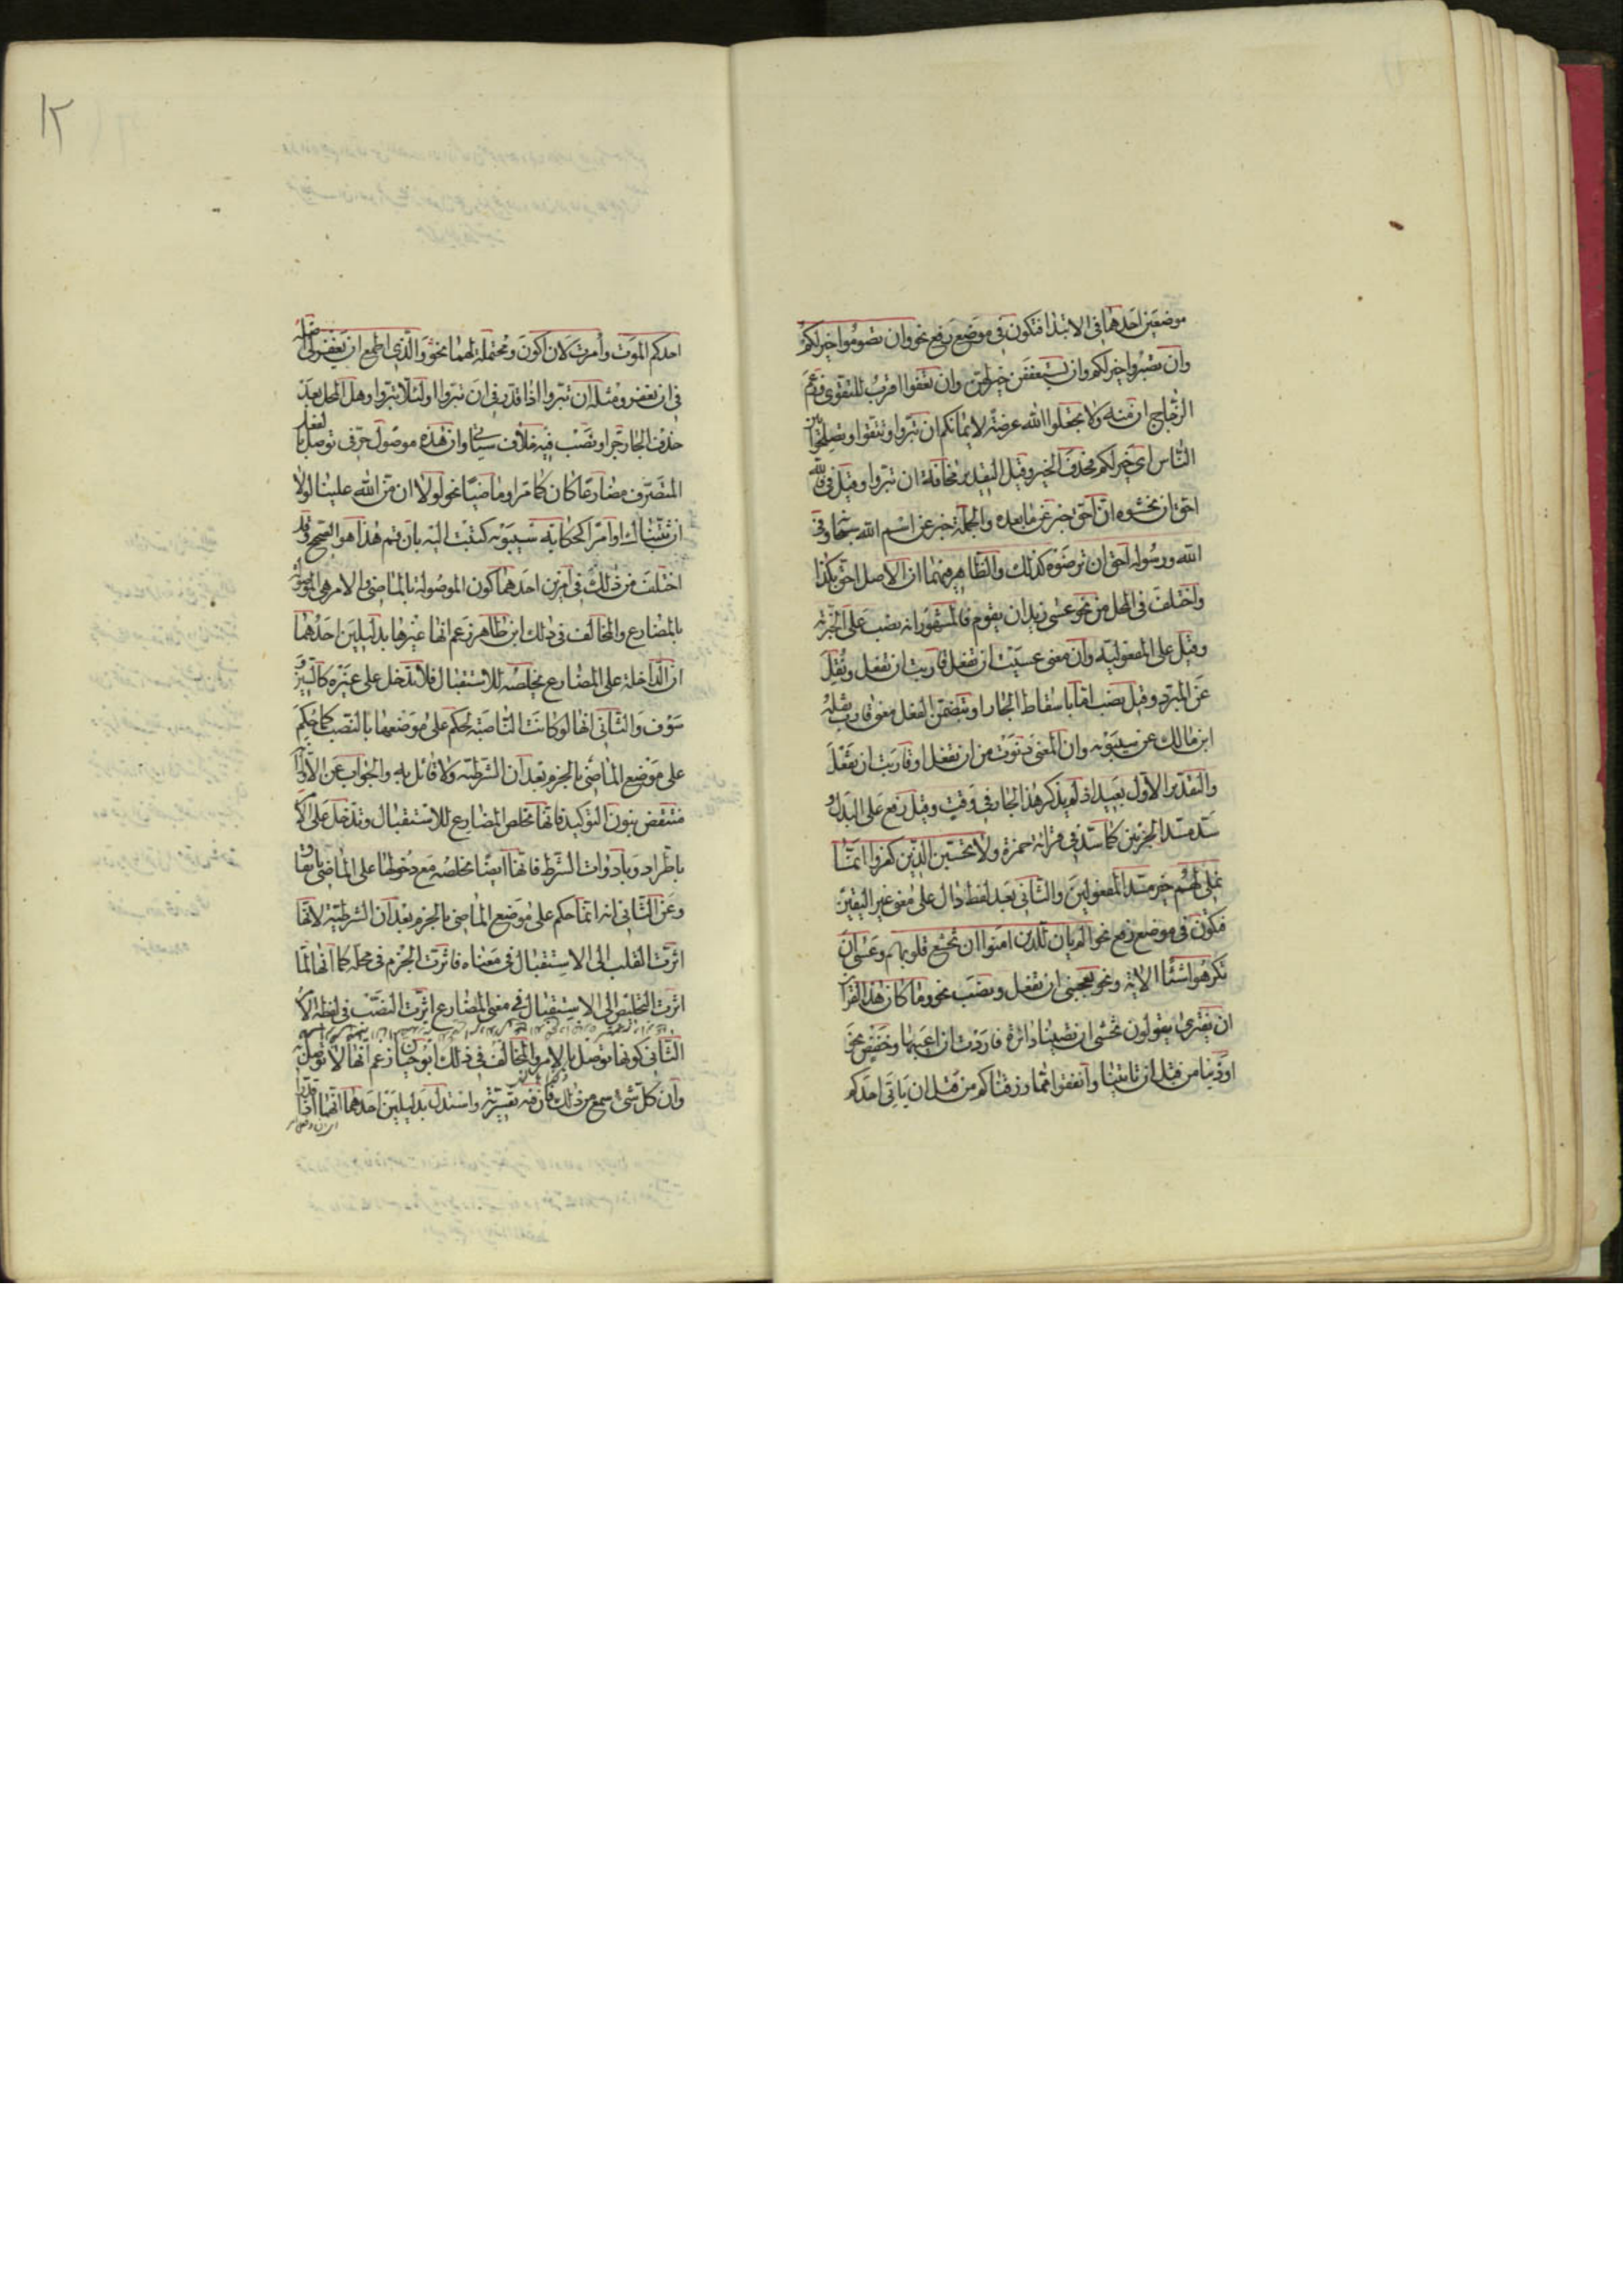 موضعين احدهما في الابتدا فتكون في موضع رفع نحو وان تصوموا خير لكم
وان تصبروا خير لكم وان يستعففن خير لهن وان تعفوا اقرب للتقوى وزعم
الزجاج ان منه ولا تجعلوا الله عرضة لايمانكم ان تبروا وتتقوا وتصلحوا بين
الناس اي خير لكم فحذف الخبر وقيل التقدير مخافة ان تبروا وقيل في فالله
احق ان تخشوه ان احق خبر عما بعده والجملة خبر عن اسم الله سبحانه وفي
الله ورسوله احق ان ترضوه كذلك والظاهر فيهما ان الاصل احق بكذا
واختلف في المحل من نحو عسى زيد ان يقوم فالمشهور انه نصب على الخبرية
وقيل على المفعولية وان معنى عسيت ان تفعل قاربت ان تفعل ونقل
عن المبرد وقيل نصب لها باسقاط الجار او بتضمن الفعل معنى قارب نقله
ابن مالك عن سيبويه وان المعنى دنوت من ان تفعل او قاربت ان تفعل
والتقدير الاول بعيد اذ لم يذكر هذا الجار في وقت وقيل رفع على البدل
سد مسد الجزئين كما سد في قراءة حمزة ولا تحسبن الذين كفروا انما
نملي لهم خير مسد المفعولين والثاني بعد لفظ دال على معنى غير اليقين
فتكون في موضع رفع نحو الم يان للذين امنوا ان تخشع قلوبهم وعسى ان
تكرهوا شيئا الاية ونحو يعجبني ان تفعل ونصب نحو وما كان هذا القران
ان يفترى يقولون نخشى ان تصيبنا دائرة فاردت ان اعيبها وخفض نحو
اوذينا من قبل ان تاتينا وانفقوا مما رزقناكم من قبل ان ياتي احدكم
١٢
احدكم الموت وامرت لان اكون ومحتملة لهما نحو والذي اطمع ان يغفر لي اصله
في ان يغفر ومثله ان تبروا اذا قدر في ان تبروا او لئلا تبروا وهل المحل بعد
حذف الجار جر او نصب فيه خلاف سياتي وان هذه موصول حرفي توصل بالفعل
المتصرف مضارعا كان كما مر او ماضيا نحو لولا ان من الله علينا لولا
ان ثبتناك او امرا كحكاية سيبويه كتبت اليه بان قم هذا هو الصحيح وقد
اختلف من ذلك في امرين احدهما كون الموصولة بالماضي والامر هي الموصولة
بالمضارع والمخالف في ذلك ابن طاهر زعم انها غيرها بدليلين احدهما
ان الداخلة على المضارع تخلصه للاستقبال فلا تدخل على غيره كالسين و
سوف والثاني انها لو كانت الناصبة لحكم على موضعها بالنصب كما حكم
على موضع الماضي بالجزم بعد ان الشرطية ولا قائل به والجواب عن الاول
منتقض بنون التوكيد فانها تخلص المضارع للاستقبال وتدخل على الامر
باطراد وبادوات الشرط فانها ايضا تخلصه مع دخولها على الماضي باتفاق
وعن الثاني انه انما حكم على موضع الماضي بالجزم بعد ان الشرطية لانها
اثرت القلب الى الاستقبال في معناه فاثرت الجزم في محله كما انها لما
اثرت التخليص الى الاستقبال في معنى المضارع اثرت النصب في لفظه الامر
الثاني كونها توصل بالامر والمخالف في ذلك ابو حيان زعم انها لا توصل به
وان كل شيء سمع من ذلك فان فيه تفسيرية واستدل بدليلين احدهما انها اذا قدرنا